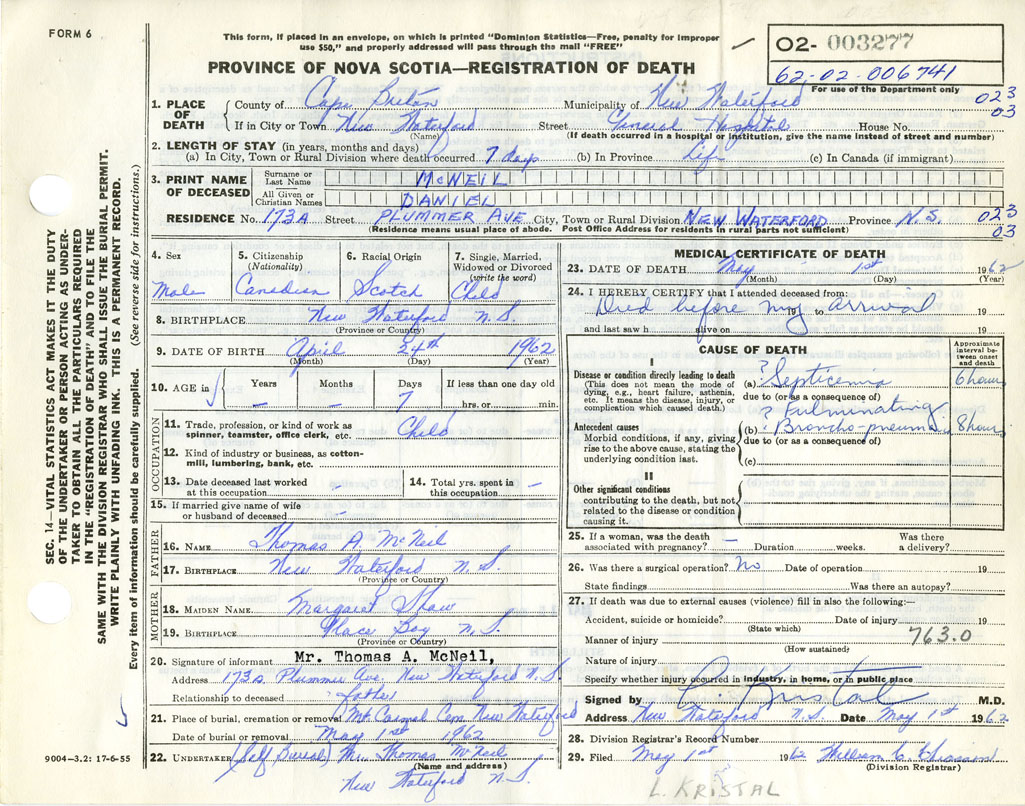 FORM 6
This form, if placed in an envelope, on which is printed "Dominion Statistics—Free, penalty for improper
use $50," and properly addressed will pass through the mail "FREE"
PROVINCE OF NOVA SCOTIA—REGISTRATION OF DEATH
02- 003277
62-02-006741
For use of the Department only
023
03
1. PLACE OF DEATH
County of Cape Breton Municipality of New Waterford
If in City or Town New Waterford Street General Hospital House No.
(Name) (If death occurred in a Hospital or Institution, give the name instead of street and number)
2. LENGTH OF STAY (in years, months and days)
(a) In City, Town or Rural Division where death occurred 7 days (b) In Province Life (c) In Canada (if immigrant)
3. PRINT NAME OF DECEASED
Surname or Last Name McNEIL
All Given or Christian Names DANIEL
RESIDENCE No. 173A Street PLUMMER AVE City, Town or Rural Division NEW WATERFORD Province N.S.
(Residence means usual place of abode. Post Office Address for residents in rural parts not sufficient)
023
03
4. Sex
Male
5. Citizenship
(Nationality)
Canadian
6. Racial Origin
Scotch
7. Single, Married, Widowed or Divorced
(write the word)
Child
8. BIRTHPLACE New Waterford N.S.
(Province or Country)
9. DATE OF BIRTH April 24th 1962
(Month) (Day) (Year)
10. AGE in
Years Months Days If less than one day old
– – 7 hrs. or min.
OCCUPATION
11. Trade, profession, or kind of work as
spinner, teamster, office clerk, etc. Child
12. Kind of industry or business, as cotton-
mill, lumbering, bank, etc.
13. Date deceased last worked
at this occupation –
14. Total yrs. spent in
this occupation –
15. If married give name of wife
or husband of deceased –
FATHER
16. NAME Thomas A. McNeil
17. BIRTHPLACE New Waterford N.S.
(Province or Country)
MOTHER
18. MAIDEN NAME Margaret Shaw
19. BIRTHPLACE Glace Bay N.S.
(Province or Country)
20. Signature of informant Mr. Thomas A. McNeil,
Address 173A Plummer Ave. New Waterford N.S.
Relationship to deceased father
21. Place of burial, cremation or removal Mt Carmel Cem New Waterford
Date of burial or removal May 1st 1962
22. UNDERTAKER (Self Burial) Mr. Thomas McNeil
(Name and address)
New Waterford N.S.
MEDICAL CERTIFICATE OF DEATH
23. DATE OF DEATH May 1st 1962
(Month) (Day) (Year)
24. I HEREBY CERTIFY that I attended deceased from:
Died before my arrival 19 to 19
and last saw h alive on 19
CAUSE OF DEATH
Approximate interval between onset and death
I
Disease or condition directly leading to death
(This does not mean the mode of
dying, e.g., heart failure, asthenia,
etc. It means the disease, injury, or
complication which caused death.)
(a) ? Septicemia 6 hours
due to (or as a consequence of)
Antecedent causes
Morbid conditions, if any, giving
rise to the above cause, stating the
underlying condition last.
? Fulminating
(b) Broncho-pneum. 8 hours
due to (or as a consequence of)
(c)
II
Other significant conditions
contributing to the death, but not
related to the disease or condition
causing it.
25. If a woman, was the death
associated with pregnancy? – Duration weeks. Was there
a delivery?
26. Was there a surgical operation? No Date of operation 19
State findings Was there an autopsy?
27. If death was due to external causes (violence) fill in also the following:—
Accident, suicide or homicide? Date of injury 19
(State which)
Manner of injury 763.0
(How sustained)
Nature of injury
Specify whether injury occurred in industry, in home, or in public place
Signed by L. Kristal M.D.
Address New Waterford N.S. Date May 1st 1962
28. Division Registrar's Record Number
29. Filed May 1st 1962 William C
(Division Registrar)
L. KRISTAL
SEC. 14—VITAL STATISTICS ACT MAKES IT THE DUTY
OF THE UNDERTAKER OR PERSON ACTING AS UNDER-
TAKER TO OBTAIN ALL THE PARTICULARS REQUIRED
IN THE "REGISTRATION OF DEATH" AND TO FILE THE
SAME WITH THE DIVISION REGISTRAR WHO SHALL ISSUE THE BURIAL PERMIT.
WRITE PLAINLY WITH UNFADING INK. THIS IS A PERMANENT RECORD.
Every item of information should be carefully supplied. (See reverse side for instructions.)
9004-3.2: 17-6-55